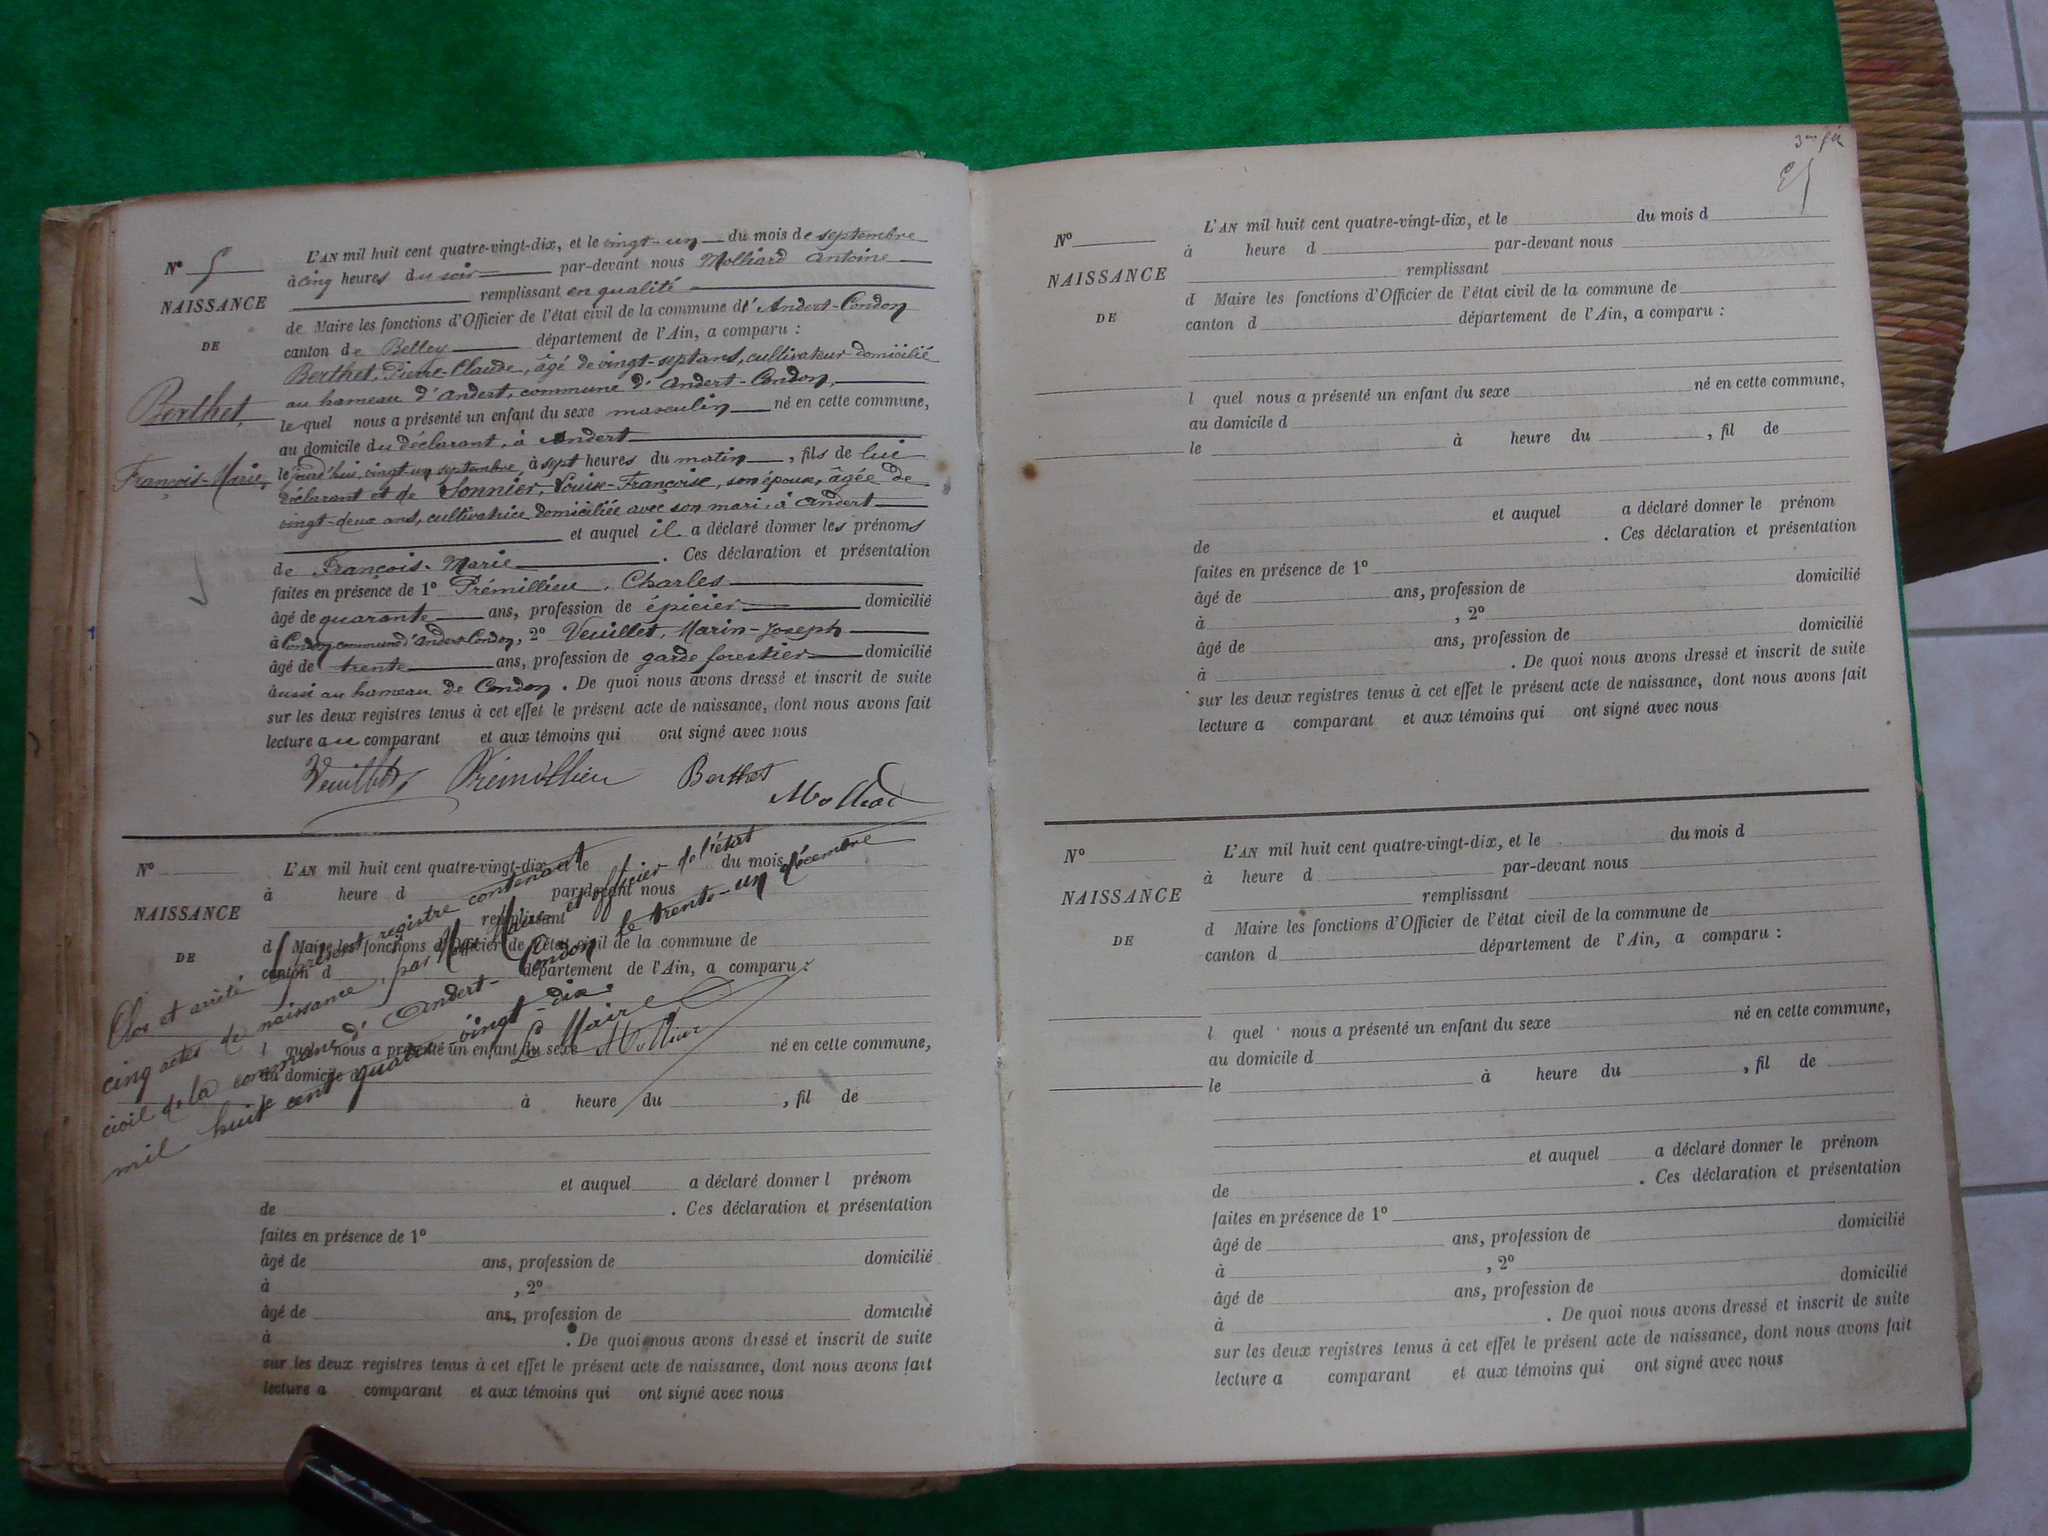 N° 5
NAISSANCE
DE
Berthet,
François-Marie,
L'AN mil huit cent quatre-vingt-dix, et le vingt-un du mois de septembre
à cinq heures du soir par-devant nous Molliard Antoine
remplissant en qualité
de Maire les fonctions d'Officier de l'état civil de la commune d'Andert-Condon
canton de Belley département de l'Ain, a comparu :
Berthet, Pierre-Claude, âgé de vingt-sept ans, cultivateur domicilié
au hameau d'Andert, commune d'Andert-Condon,
le quel nous a présenté un enfant du sexe masculin né en cette commune,
au domicile du déclarant, à Andert
le jourd'hui, vingt-un septembre, à sept heures du matin, fils de lui
déclarant et de Sonnier, Louise-Françoise, son épouse, âgée de
vingt-deux ans, cultivatrice domiciliée avec son mari, à Andert
et auquel il a déclaré donner les prénoms
de François-Marie. Ces déclaration et présentation
faites en présence de 1° Prémillieu, Charles
âgé de quarante ans, profession de épicier domicilié
à Condon commune d'Andert-Condon, 2° Veuillet, Marin-Joseph
âgé de trente ans, profession de garde forestier domicilié
aussi au hameau de Condon. De quoi nous avons dressé et inscrit de suite
sur les deux registres tenus à cet effet le présent acte de naissance, dont nous avons fait
lecture au comparant et aux témoins qui ont signé avec nous
Veuillet Prémillieu Berthet
Molliard
N°
NAISSANCE
DE
L'AN mil huit cent quatre-vingt-dix, et le du mois
à heure d par-devant nous
remplissant
d Maire les fonctions d'Officier de l'état civil de la commune de
canton d département de l'Ain, a comparu :
l quel nous a présenté un enfant du sexe né en cette commune,
au domicile d
à heure du , fil de
et auquel a déclaré donner l prénom
de . Ces déclaration et présentation
faites en présence de 1°
âgé de ans, profession de domicilié
à , 2°
âgé de ans, profession de domicilié
à . De quoi nous avons dressé et inscrit de suite
sur les deux registres tenus à cet effet le présent acte de naissance, dont nous avons fait
lecture a comparant et aux témoins qui ont signé avec nous
Clos et arrêté le présent registre contenant
cinq actes de naissance, par Nous Maire et officier de l'état
civil de la commune d'Andert-Condon le trente-un décembre
mil huit cent quatre vingt-dix.
Le Maire
Molliard
N°
NAISSANCE
DE
L'AN mil huit cent quatre-vingt-dix, et le du mois d
à heure d par-devant nous
remplissant
d Maire les fonctions d'Officier de l'état civil de la commune de
canton d département de l'Ain, a comparu :
l quel nous a présenté un enfant du sexe né en cette commune,
au domicile d
le à heure du , fil de
et auquel a déclaré donner le prénom
de . Ces déclaration et présentation
faites en présence de 1°
âgé de ans, profession de domicilié
à , 2°
âgé de ans, profession de domicilié
à . De quoi nous avons dressé et inscrit de suite
sur les deux registres tenus à cet effet le présent acte de naissance, dont nous avons fait
lecture a comparant et aux témoins qui ont signé avec nous
N°
NAISSANCE
DE
L'AN mil huit cent quatre-vingt-dix, et le du mois d
à heure d par-devant nous
remplissant
d Maire les fonctions d'Officier de l'état civil de la commune de
canton d département de l'Ain, a comparu :
l quel nous a présenté un enfant du sexe né en cette commune,
au domicile d
le à heure du , fil de
et auquel a déclaré donner le prénom
de . Ces déclaration et présentation
faites en présence de 1°
âgé de ans, profession de domicilié
à , 2°
âgé de ans, profession de domicilié
à . De quoi nous avons dressé et inscrit de suite
sur les deux registres tenus à cet effet le présent acte de naissance, dont nous avons fait
lecture a comparant et aux témoins qui ont signé avec nous